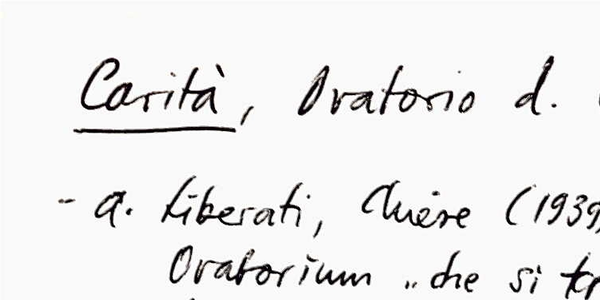 Carità, Oratorio d.
- A. Liberati, Chiese (1939
Oratorium „che si